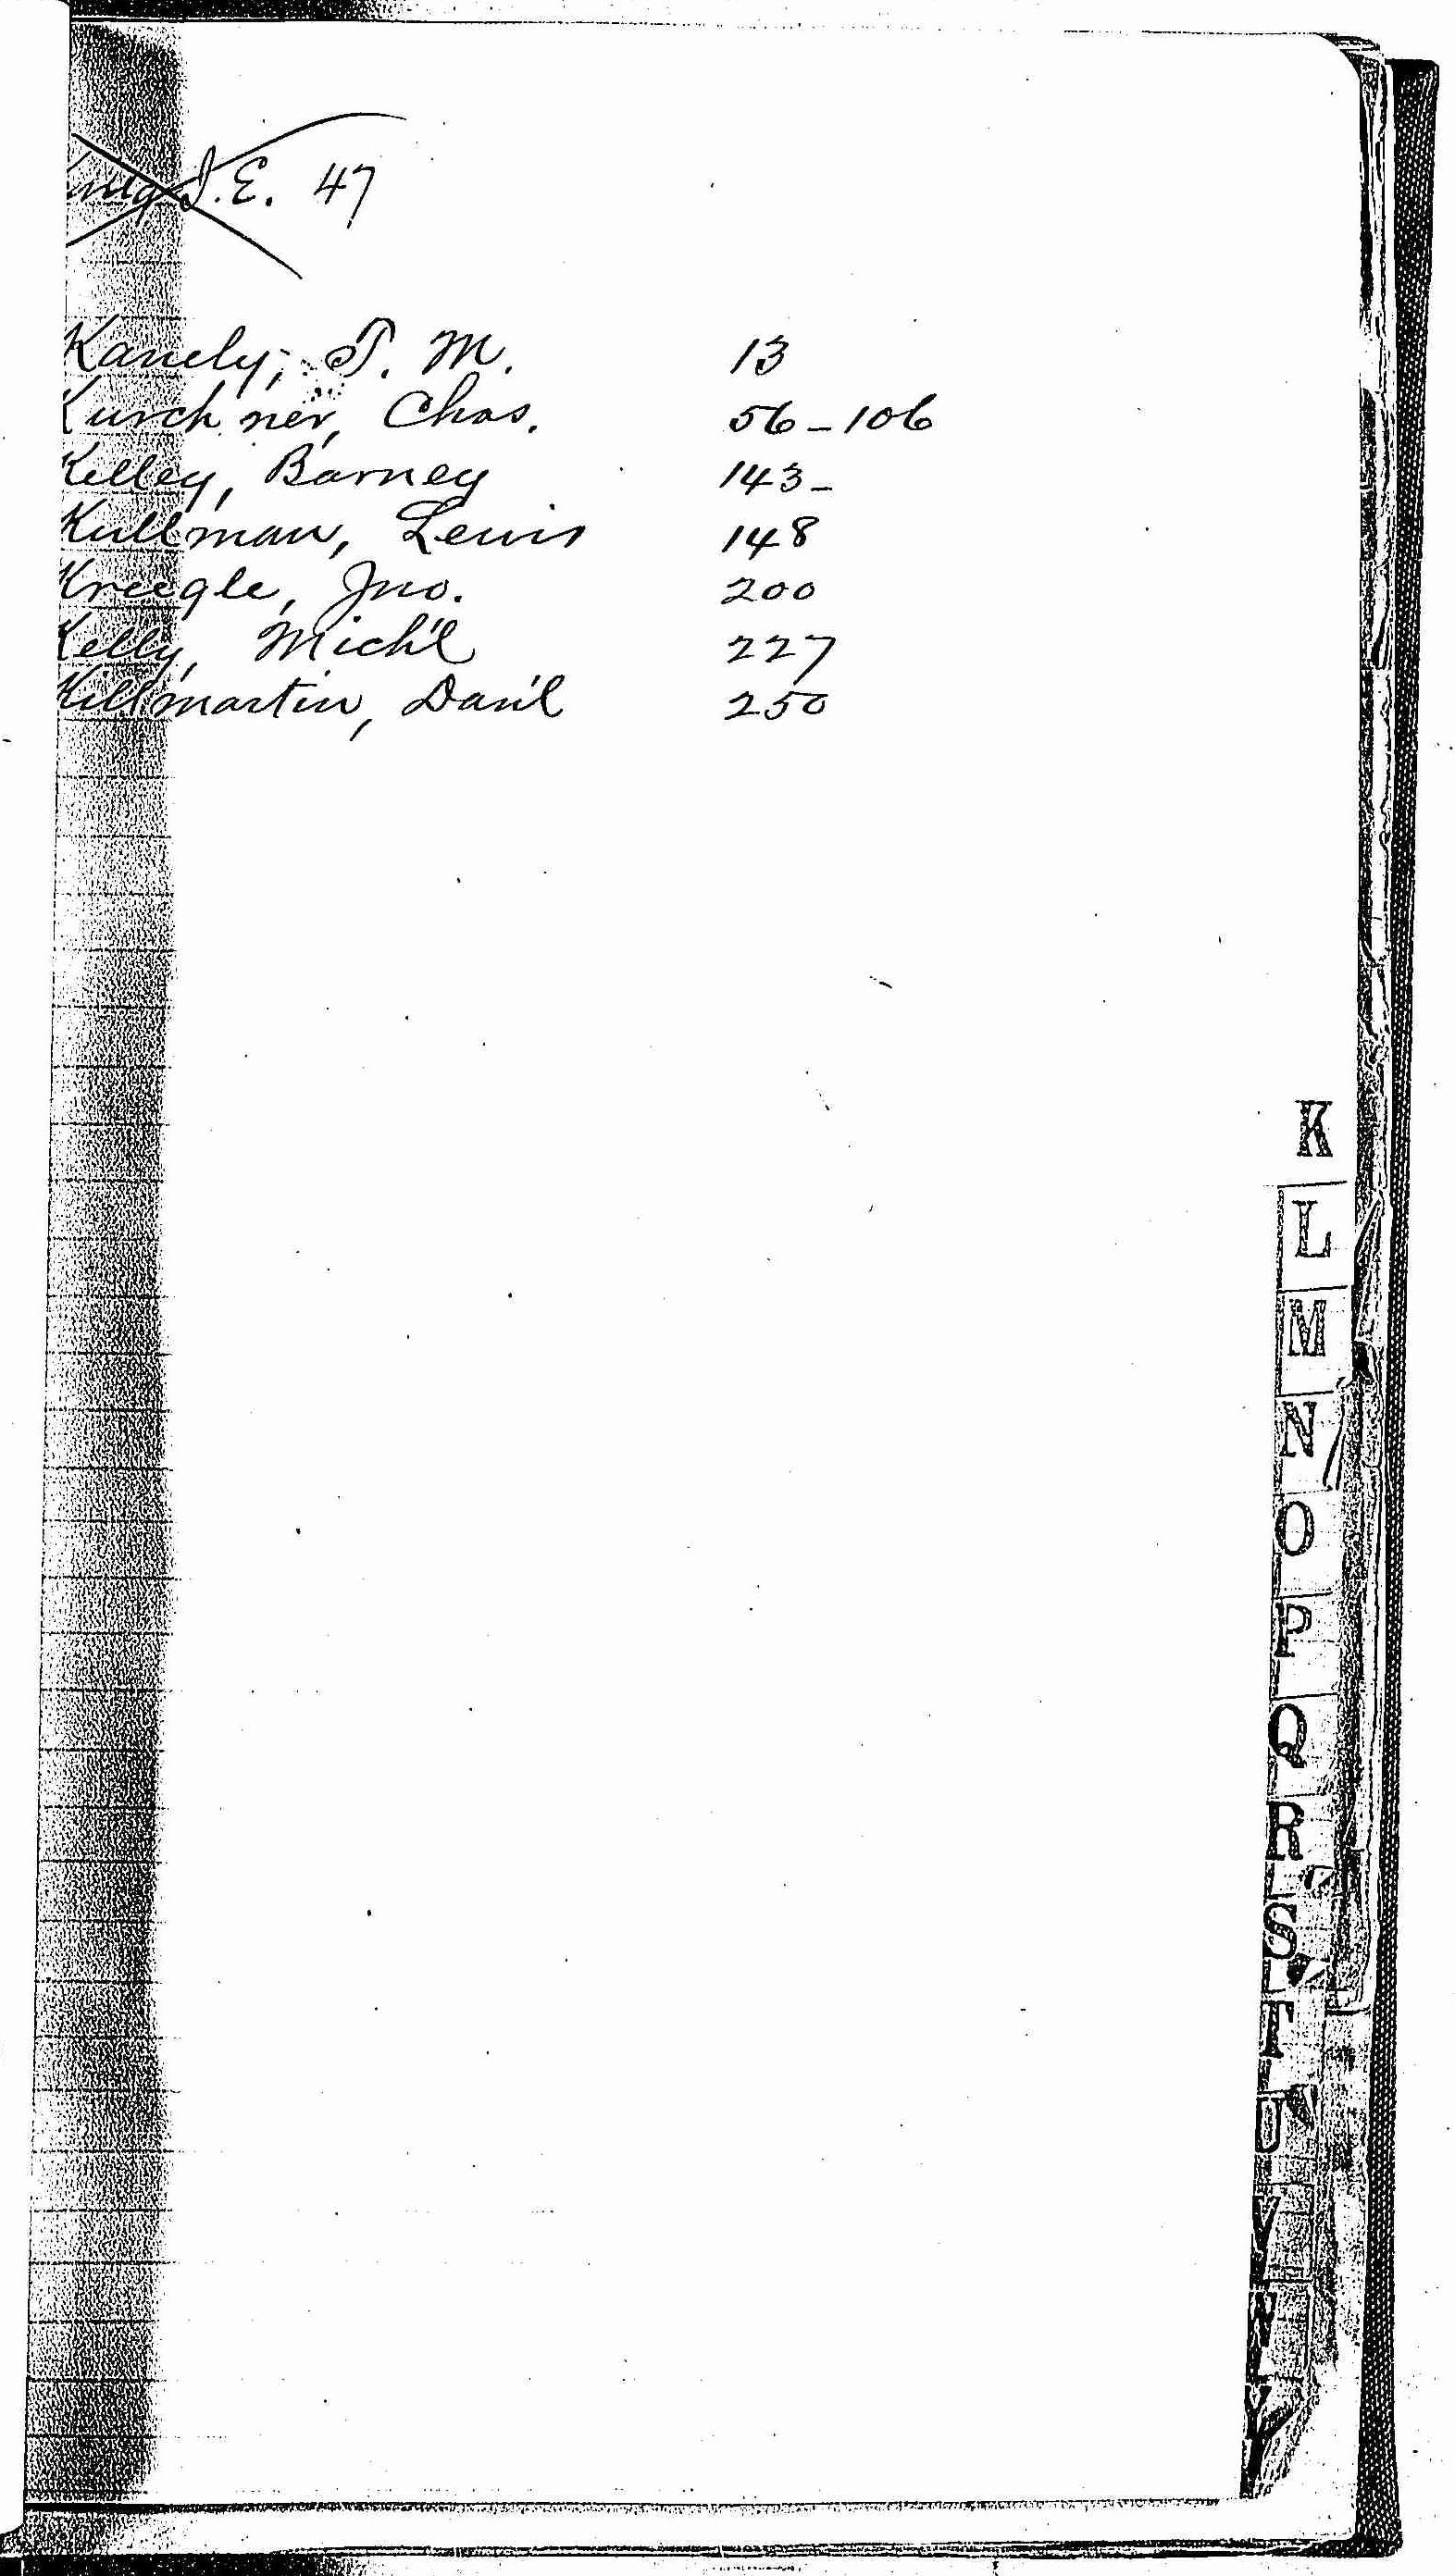 J.E. 47
Kanely, T. M. 13
Kurchner, Chas. 56-106
Kelley, Barney 143-
Kullman, Lewis 148
Kreegle, Jno. 200
Kelly, Mich'l 227
Killmartin, Dan'l 250
K
L
M
N
O
P
Q
R
S
T
U
V
W
Y